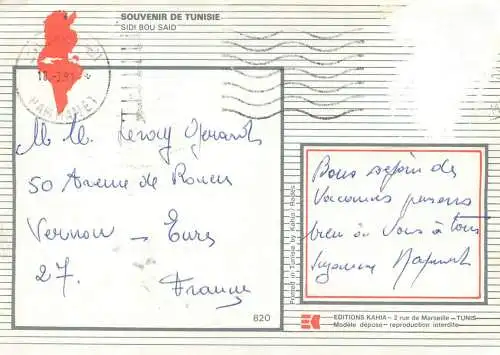 SOUVENIR DE TUNISIE
SIDI BOU SAID
HAMMAMET
M. M. Leroy Gerard
50 Avenue de Rouen
Vernon – Eure
27.
France
820
Printed in Tunisia by Kahia
Bons sejoin de
Vacances pensons
bien à Vous à tous
Suzanne
EDITIONS KAHIA – 2 rue de Marseille – TUNIS
Modèle déposé – reproduction interdite